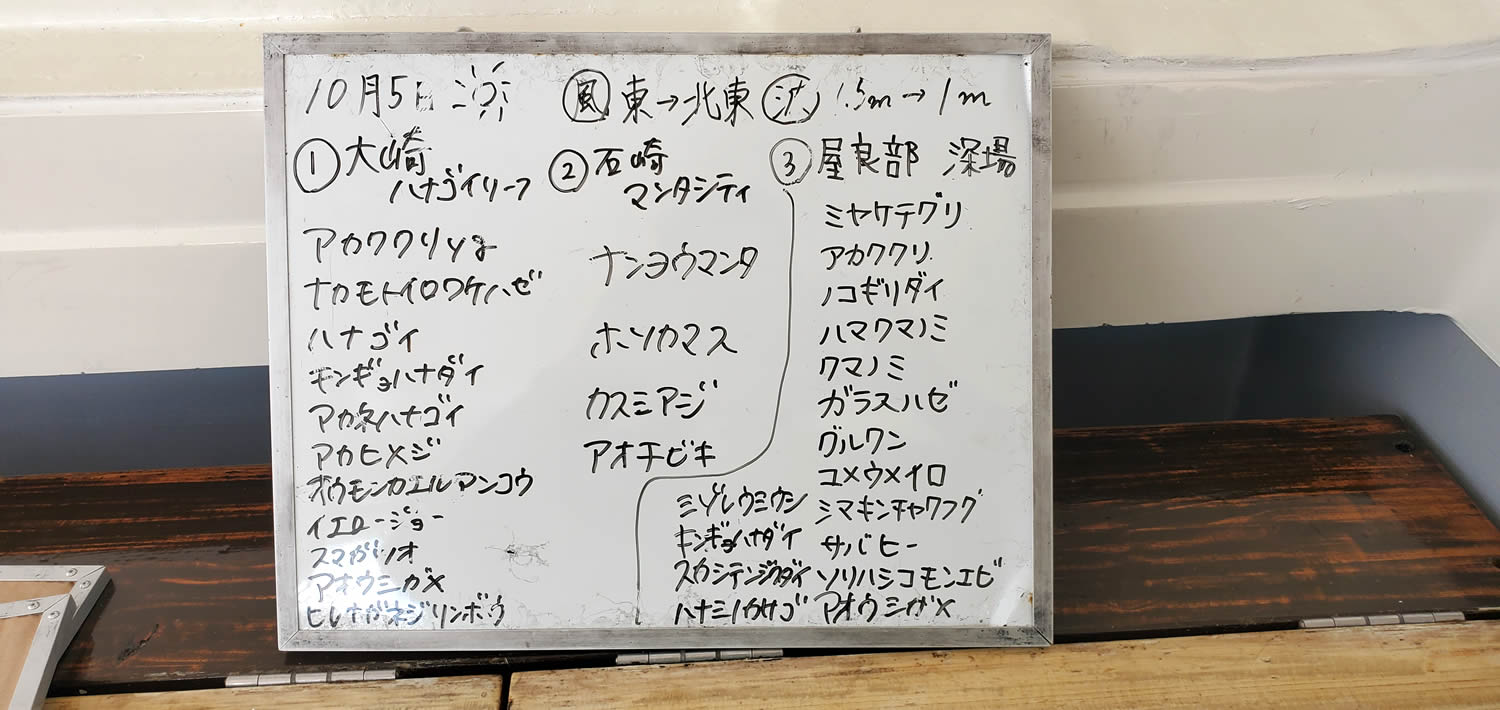 10月5日 風 東→北東 波 1.5m→1m
① 大崎
ハナゴイリーフ
アカククリyg
ナカモトイロワケハゼ
ハナゴイ
キンギョハナダイ
アカネハナゴイ
アカヒメジ
オウモンカエルアンコウ
イエロージョー
スマガツオ
アオウミガメ
ヒレナガネジリンボウ
② 石崎
マンタシティ
ナンヨウマンタ
ホソカマス
カスミアジ
アオチビキ
③ 屋良部 深場
ミヤケテグリ
アカククリ
ノコギリダイ
ハマクマノミ
クマノミ
ガラスハゼ
グルクン
ユメウメイロ
シマキンチャクフグ
サバヒー
ソリハシコモンエビ
アオウミガメ
ミゾレウミウシ
キンギョハナダイ
スカシテンジクダイ
ハナミノカサゴ